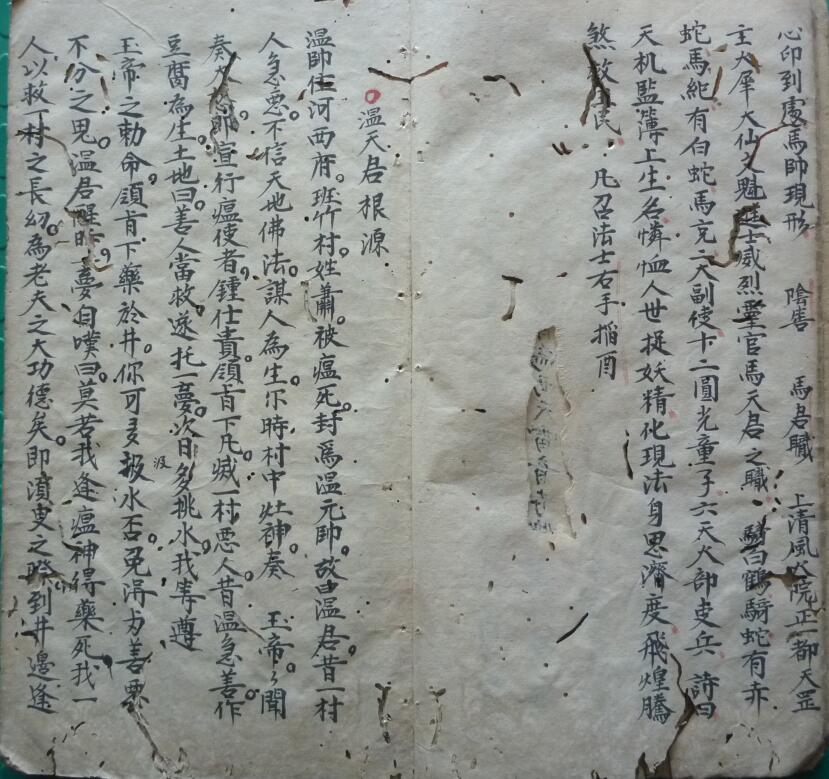 心印到處馬帥現形　陰雷　馬君職　上清風火院正一都天罡
主火犀大仙文魁進士威烈靈官馬天君之職　驂白鶴騎蛇有赤
蛇馬紀有白蛇馬充二大副使卞二圓光童子六天火部吏兵　詩曰
天机監簿上生名憐恤人世捉妖精化現法身思濟度飛煌騰
煞救民　凡召法士右手搯酉
溫天君根源
溫帥住河西府班竹村姓蕭被瘟死封爲温元帥故曰温君昔一村
人急惡不信天地佛法謀人為生尓時村中灶神奏　玉帝々聞
奏大即宣行瘟使者鍾仕貴領旨下凡滅一村惡人昔温急善作
豆腐為生土地曰善人當救遂托一夢次日多挑水我等尊
汲
玉帝之勅命領旨下藥於井你可多报水否免淂方善惡
不分之鬼温君醒昨夢自嘆曰莫若我逢瘟神得藥死我一
人以救一村之長幼為老夫之大功德矣即濆叟之際到井邊逢